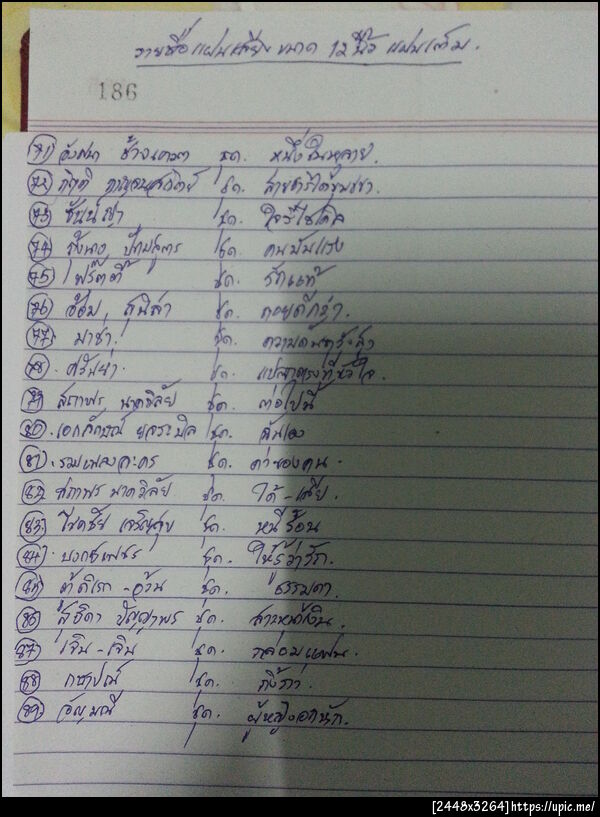 รายชื่อแผ่นเสียง ขนาด 12 นิ้ว แผ่นเต็ม.
186
71) อังศนา ช้างเศวต ชุด. หนึ่งในหลาย.
72) กิตติ กาญจนสถิตย์ ชุด. สายธารใต้ขุนเขา.
73) ชันน์ญา ชุด. ใจรีไซเคิล
74) ชุด. คนมันแรง
75) เฟริตตี้ ชุด. รักแท้
76) อ้อม สุนิสา ชุด. คอยดีกว่า.
77. มาช่า. ชุด. ความดันทุรังสูง
78. ศรัณย่า. ชุด. แปลตรงที่หัวใจ.
79 สถาพร นาควิลัย ชุด. ต่อไปนี้
80. เอกลักษณ์ ยลระบิล ชุด. ฉันเอง
81. รวมเพลงละคร ชุด. ค่าของคน.
82. สถาพร นาควิลัย ชุด. ได้-เสีย.
83. โชคชัย เจริญสุข ชุด. หนีร้อน
84. บงกชเพชร ชุด. ให้รู้ว่ารัก.
85) ต้ดิเรก-อ้วน ชุด. ธรรมดา.
86) สุธิดา ปัญญาพร ชุด. สาวหน้าเงิน.
87) เจิน-เจิน ชุด. กล่อมแฟน.
88 ชุด. กิ้งก่า.
89. อัญมณี ชุด. ผู้หญิงอกหัก.
[2448x3264] https://upic.me/